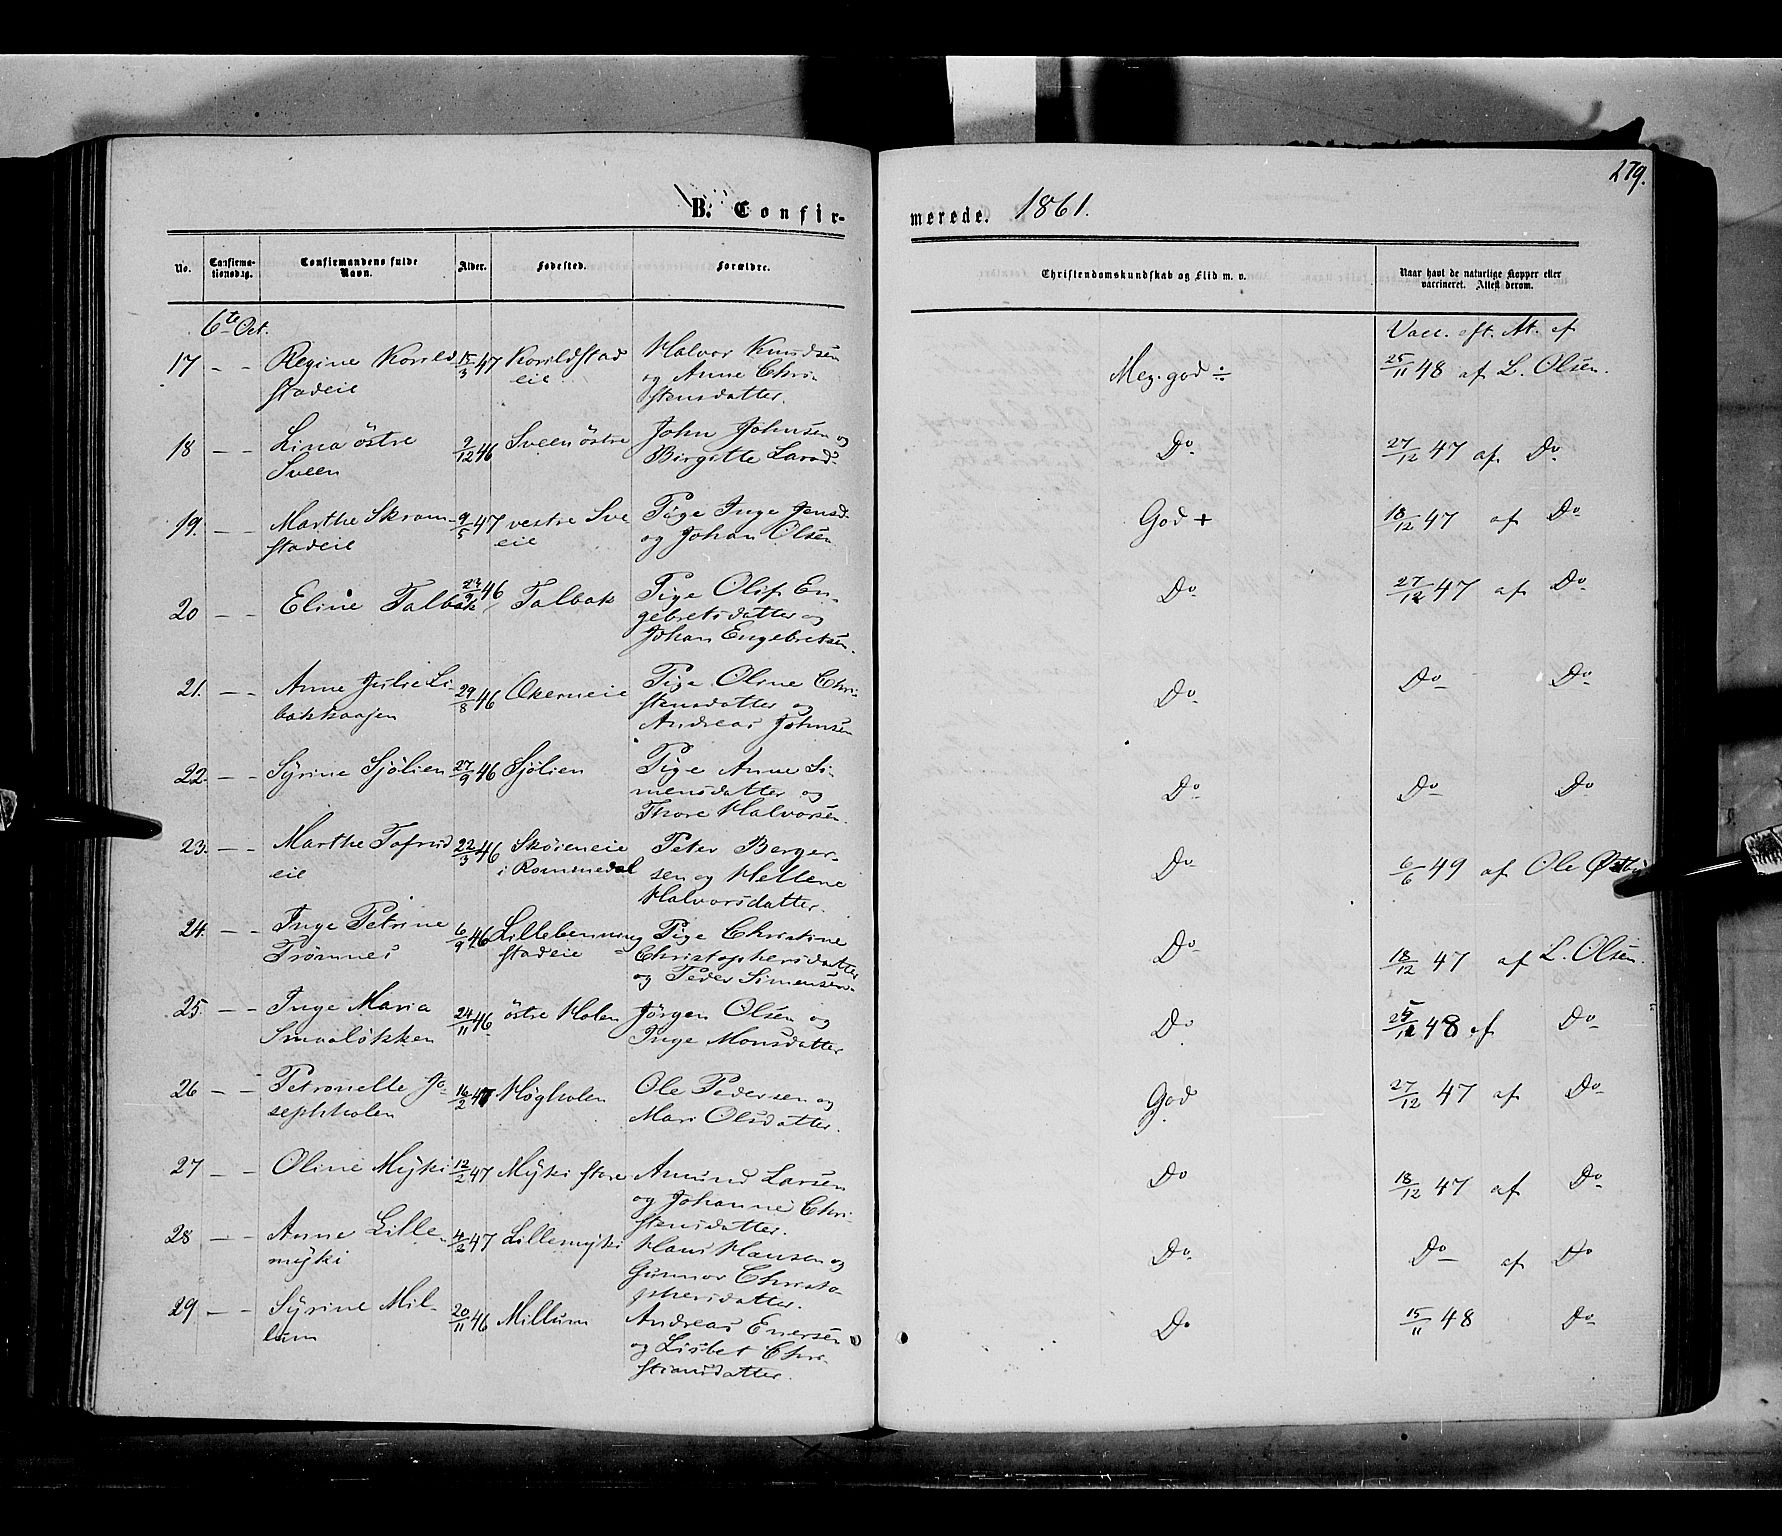 279.
B. Confir-
merede. 1861.
No.
Confirma-
tionsdag.
Confirmandens fulde
Navn.
Alder.
Fødested.
Forældre.
Christendomskundskab og Flid m. v.
Naar havt de naturlige Kopper eller
vaccineret. Attest derom.
6te Oct.
Vacc. eft. Att. af
17 — — Regine Korild 15/3 47 Korildstad Halvor Knudsen Meg. god ÷ 25/11 48 af L. Olsen.
stadeie eie og Anne Chri-
stensdatter.
18 — — Lina östre 9/12 46 Sveen östre John Johnsen og Do 27/12 47 af Do
Sveen Birgitte Larsd-
19. — — Marthe Skram- 9/5 47 vestre Sve Pige Inge Jensd. God + 18/12 47 af Do
stadeie eie og Johan Olsen
20 — — Eline Talbak 23/9 46 Talbak Pige Olif En- Do 27/12 47 af Do
gebretsdatter og
Johan Engebretsen.
21. — — Anne Julie Li- 29/8 46 Okerneie Pige Oline Chri- Do Do Do
bakhaajen stensdatter og
Andreas Johnsen
22. — — Syrine Sjölien 27/9 46 Sjölien Pige Anne Si- Do Do Do
mensdatter og
Thore Halvorsen.
23. — — Marthe Tofrud 22/3 46 Skøieneie Peter Berger- Do 6/6 49 af Ole Østby
eie i Rommedal sen og Hellene
Halvorsdatter.
24. — — Inge Petrine 6/9 46 Lillebenning Pige Christine Do 18/12 47 af L. Olsen.
Trömnes stadeie Christophersdatter
og Peder Simensen.
25. — — Inge Maria 24/11 46 östre Holen Jörgen Olsen og Do 25/12 48 af Do
Smaalökken Inge Monsdatter
26 — — Petronelle Jo- 16/2 47 Høgholen Ole Pedersen og God 27/12 47 af Do
sephholen Mari Olsdatter.
27 — — Oline Myki 12/2 47 Myki store Amund Larsen Do 18/12 47 af Do
og Johanne Chri-
stensdatter.
28 — — Anne Lille- 4/2 47 Lillemyki Hans Hansen og Do Do af Do
myki Gunnor Christo-
phersdatter.
29 — — Syrine Mil- 20/11 46 Millum Andreas Enersen Do 15/11 48 Do
lum og Lisbet Chri-
stiansdatter.